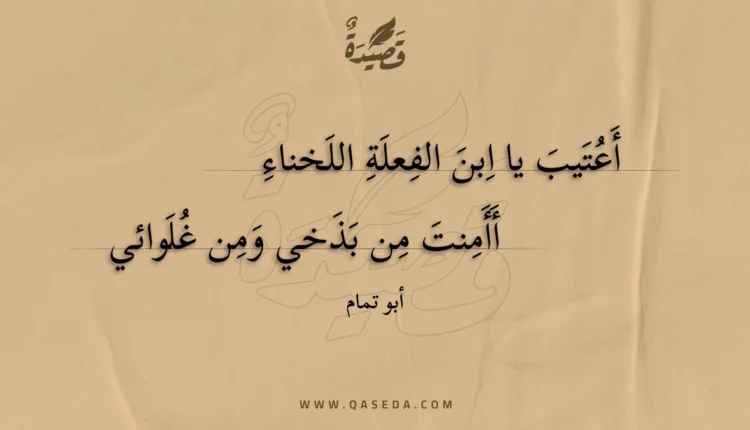 قَصِيدَةٌ
أَعُتَيبَ يا اِبنَ الفِعلَةِ اللَخناءِ
أَأَمِنتَ مِن بَذَخي وَمِن غُلَوائي
أبو تمام
WWW.QASEDA.COM